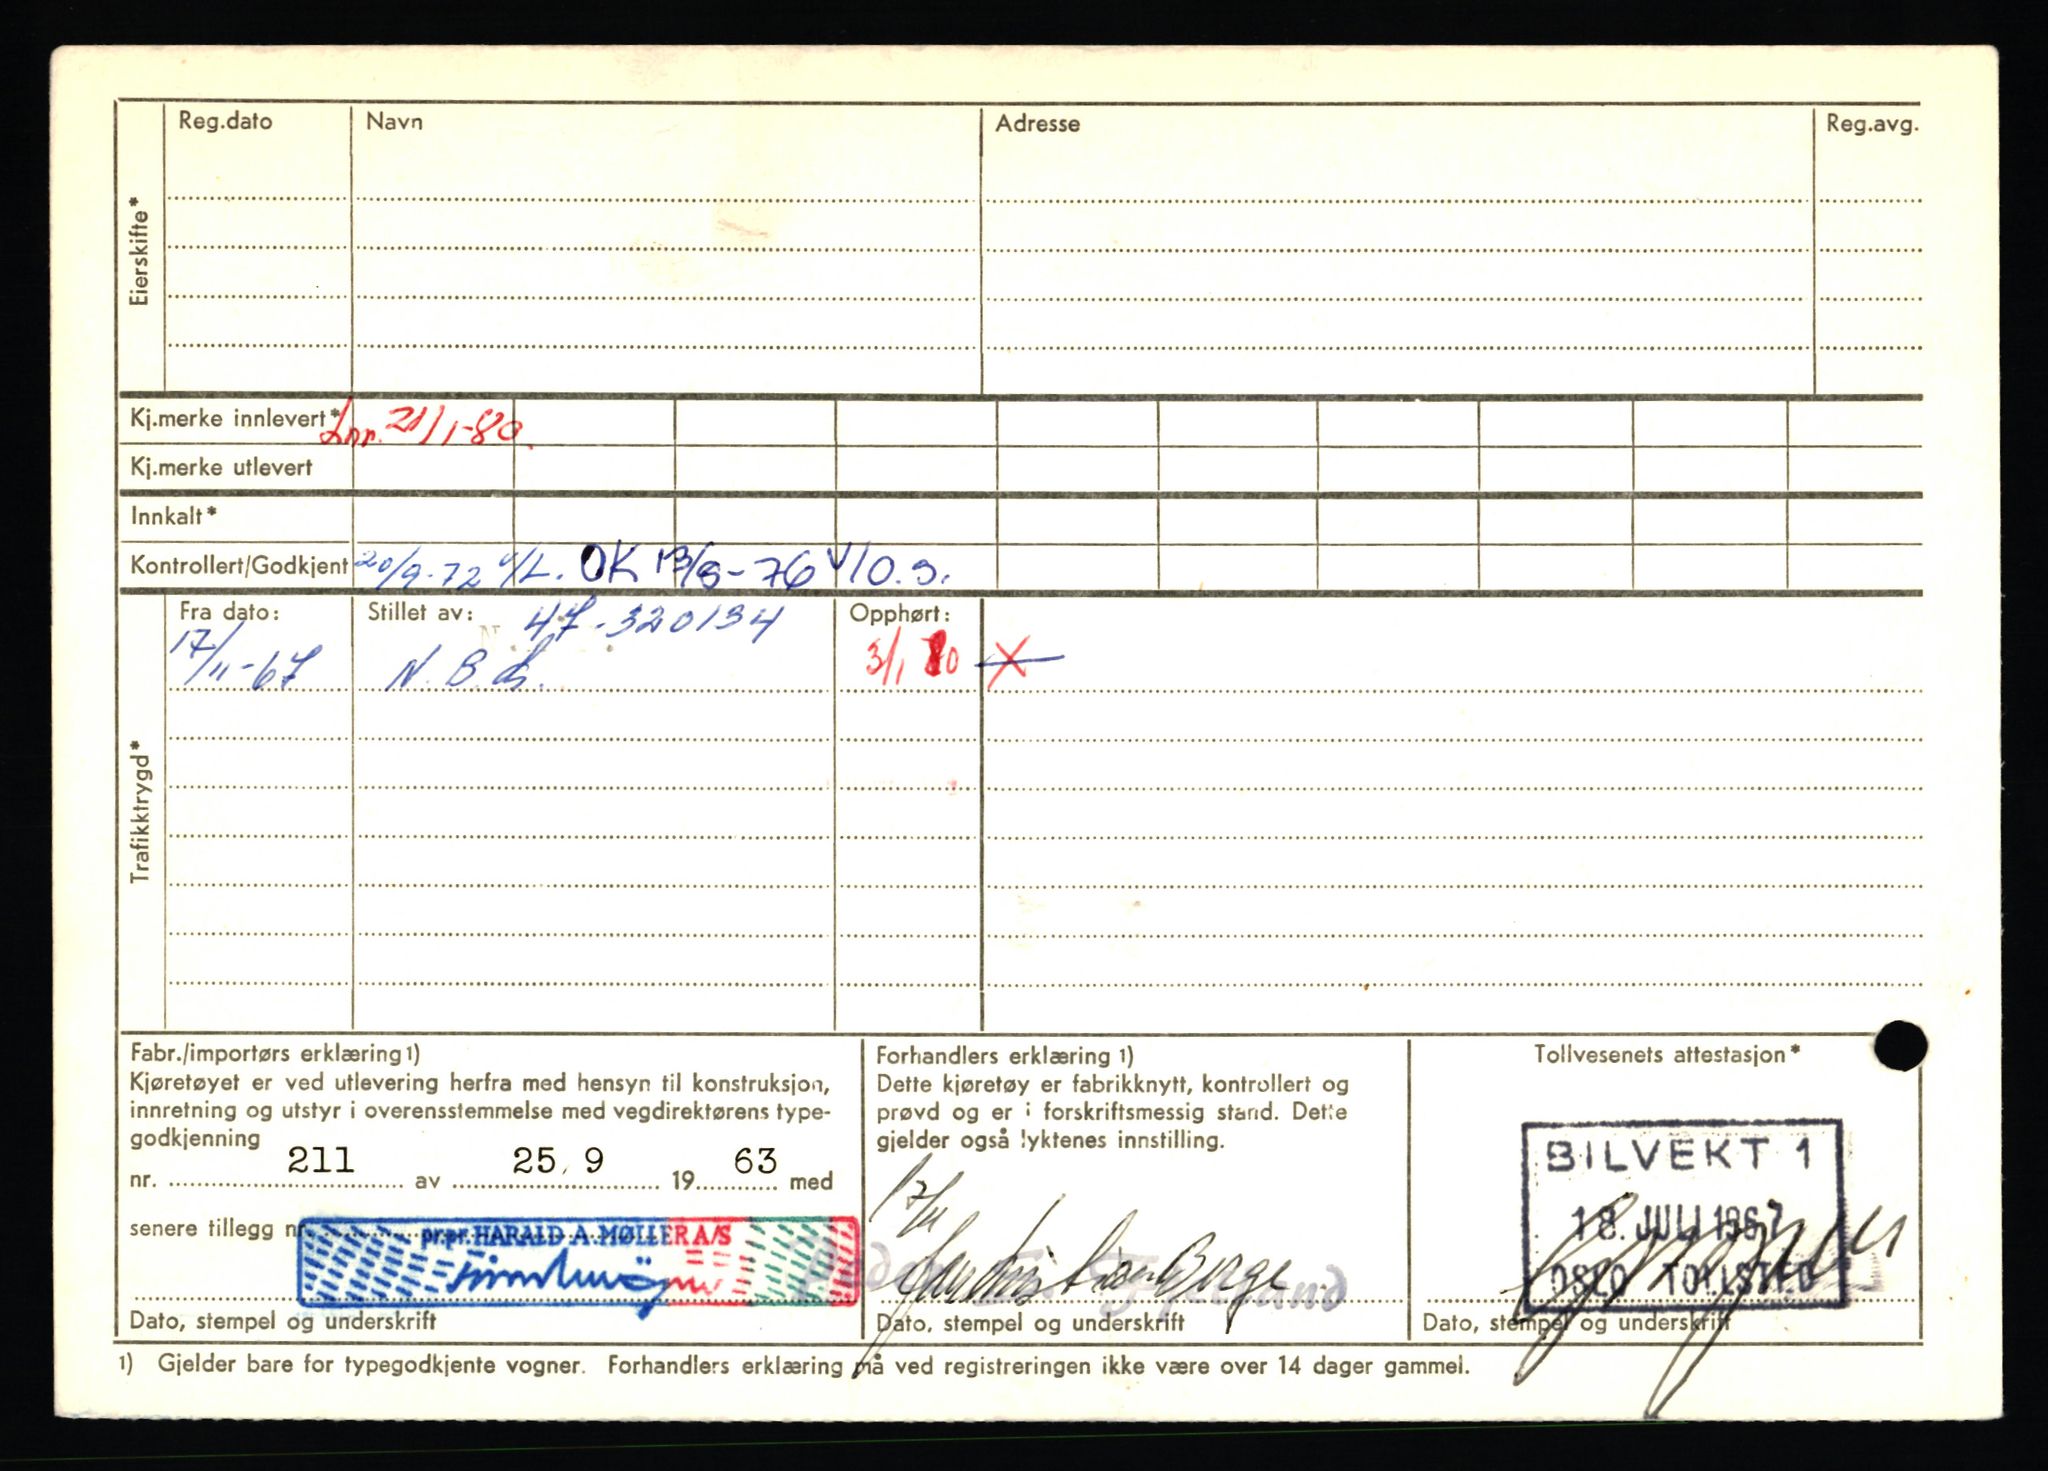 Reg.dato Navn Adresse Reg.avg.
Eierskifte*
Kj.merke innlevert* Lnr. 21/1-80.
Kj.merke utlevert
Innkalt*
Kontrollert/Godkjent 20/9-72 OK 13/8-76
Trafikktrygd*
Fra dato: Stillet av: 47-320134 Opphørt:
17/11-67 N.B. 3/1 80 X
Fabr./importørs erklæring 1)
Kjøretøyet er ved utlevering herfra med hensyn til konstruksjon,
innretning og utstyr i overensstemmelse med vegdirektørens type-
godkjenning
nr. 211 av 25.9 19 63 med
senere tillegg nr
prpr. HARALD A. MØLLER A/S
Dato, stempel og underskrift
Forhandlers erklæring 1)
Dette kjøretøy er fabrikknytt, kontrollert og
prøvd og er i forskriftsmessig stand. Dette
gjelder også lyktenes innstilling.
17/11
Berge
Dato, stempel og underskrift
Tollvesenets attestasjon*
BILVEKT 1
18. JULI 1967
OSLO TOLLSTED
Dato, stempel og underskrift
1) Gjelder bare for typegodkjente vogner. Forhandlers erklæring må ved registreringen ikke være over 14 dager gammel.